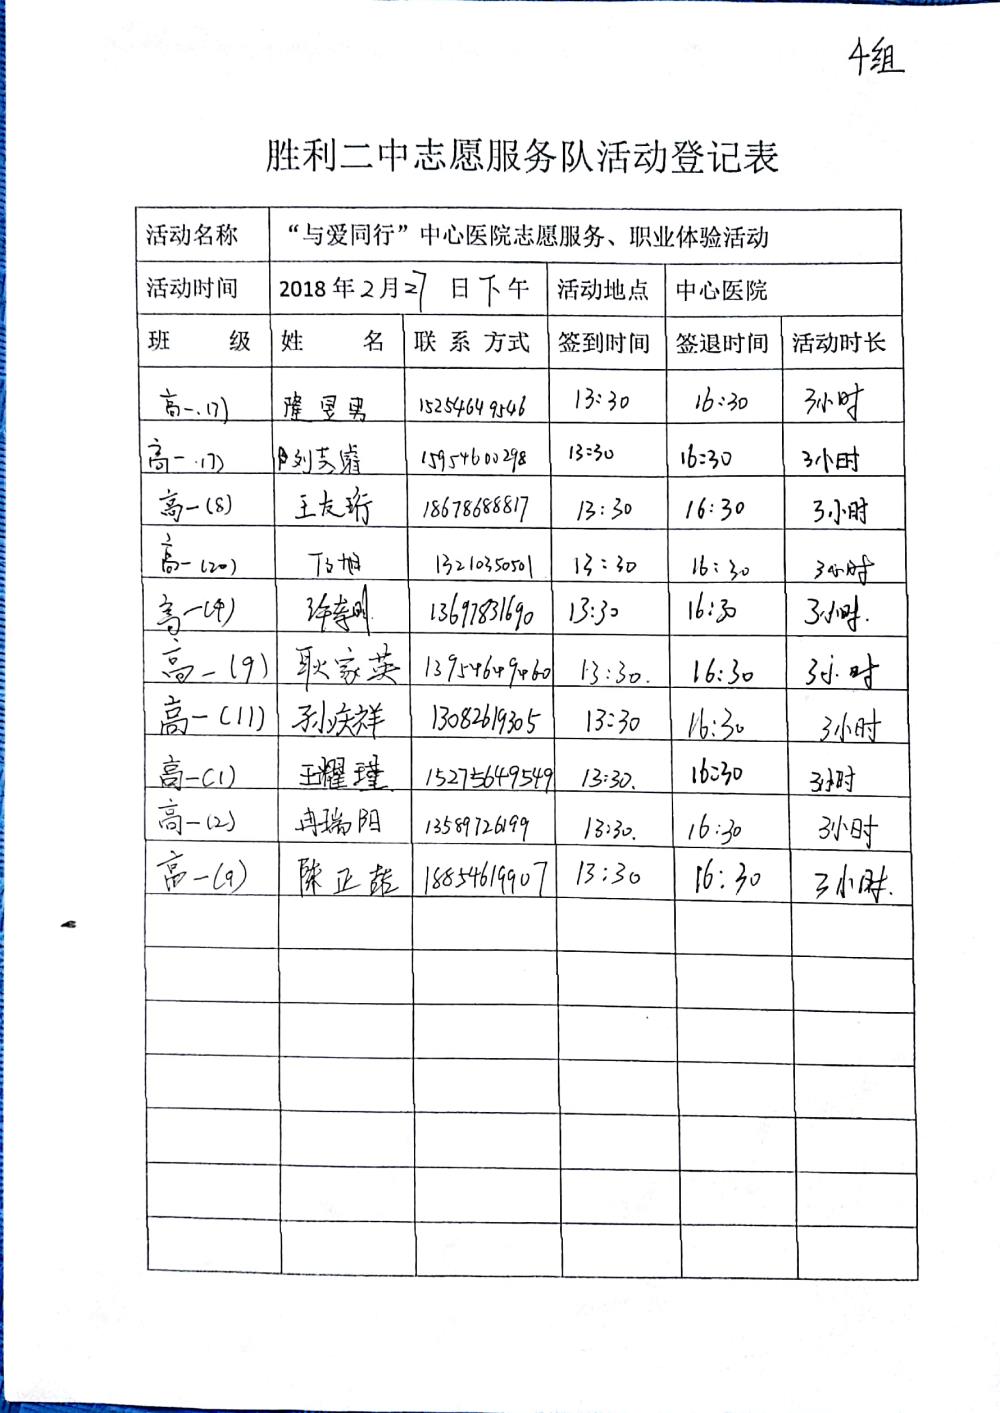 4组
胜利二中志愿服务队活动登记表
活动名称 “与爱同行”中心医院志愿服务、职业体验活动
活动时间 2018年2月27日下午 活动地点 中心医院
班 级 姓 名 联系方式 签到时间 签退时间 活动时长
高一.17) 隆昱男 15254649546 13:30 16:30 3小时
高一.17) 刘芙睿 15954600298 13:30 16:30 3小时
高一(8) 王友珩 18678688817 13:30 16:30 3小时
高一(20) 13210350501 13:30 16:30 3小时
高一(4) 13697831690 13:30 16:30 3小时.
高一(9) 耿家英 13954649460 13:30. 16:30 3小时
高一(11) 孙庆祥 13082619305 13:30 16:30 3小时
高一(1) 王耀瑾 15275649549 13:30. 16:30 3小时
高一(2) 冉瑞阳 13589726199 13:30. 16:30 3小时
高一(9) 陈正喆 18854619907 13:30 16:30 3小时.